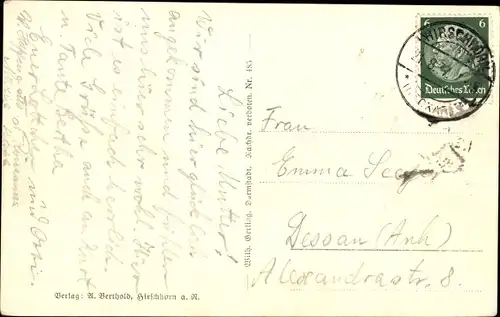 Liebe Mutter!
Wir sind hier glücklich
angekommen und fühlen
uns hier sehr wohl. Hier
ist es einfach herrlich.
Viele Grüße auch an Kurt
u. Tante Bertha
Eure Lottchen und Otti.
Verlag: A. Berthold, Hirschhorn a. N.
Wilh. Gerling, Darmstadt. Nachdr. verboten. Nr. 485
6 6
Deutsches Reich
HIRSCHHORN
(NECKAR)
Frau
Emma
Dessau (Anh)
Alexandrastr. 8.